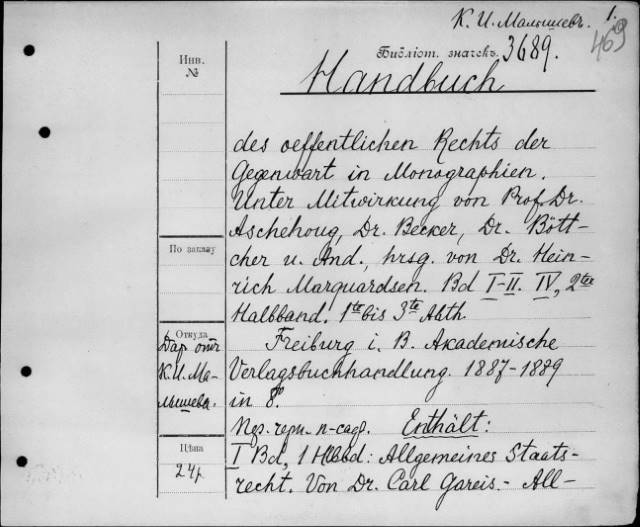 К. И. Малышевъ. 1.
Библіот. значекъ. 3689. 469
Инв.
№
Handbuch
des oeffentlichen Rechts der
Gegenwart in Monographien.
Unter Mitwirkung von Prof. Dr.
Aschehoug, Dr. Becker, Dr. Bött-
cher u. And., hrsg. von Dr. Hein-
rich Marquardsen. Bd I-II. IV, 2te
Halbband. 1te bis 3te Abth.
По заказу
Freiburg i. B. Akademische
Verlagsbuchhandlung. 1887-1889
in 8°.
Откуда
Даръ отъ
К. И. Ма-
лышева.
Enthält:
Цѣна
24р.
I Bd, 1 Hlbbd: Allgemeines Staats-
recht. Von Dr. Carl Gareis. - All-